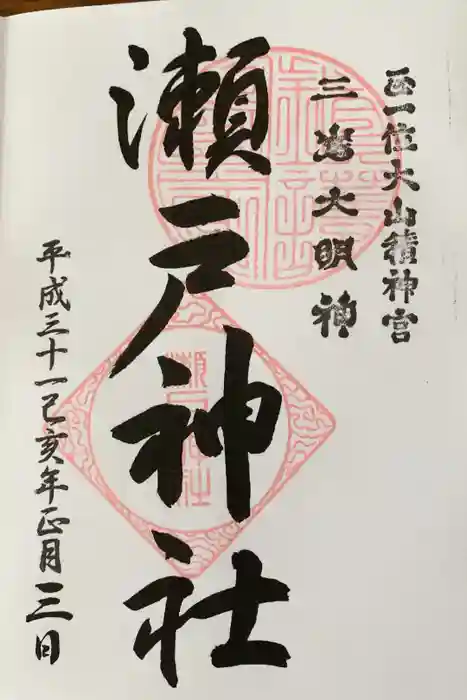 正一位大山積神宮
三嶋大明神
瀬戸神社
平成三十一己亥年正月三日
瀬戸神社